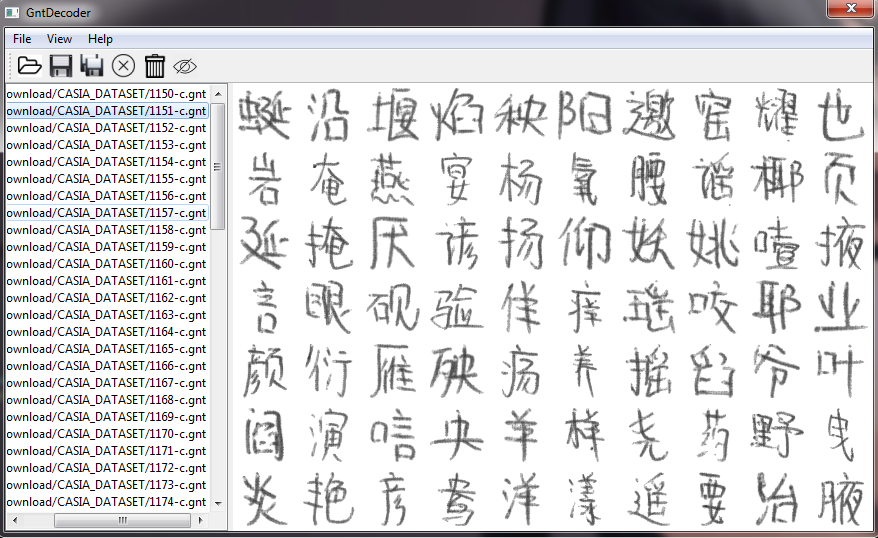 GntDecoder
File View Help
ownload/CASIA_DATASET/1150-c.gnt
ownload/CASIA_DATASET/1151-c.gnt
ownload/CASIA_DATASET/1152-c.gnt
ownload/CASIA_DATASET/1153-c.gnt
ownload/CASIA_DATASET/1154-c.gnt
ownload/CASIA_DATASET/1155-c.gnt
ownload/CASIA_DATASET/1156-c.gnt
ownload/CASIA_DATASET/1157-c.gnt
ownload/CASIA_DATASET/1158-c.gnt
ownload/CASIA_DATASET/1159-c.gnt
ownload/CASIA_DATASET/1160-c.gnt
ownload/CASIA_DATASET/1161-c.gnt
ownload/CASIA_DATASET/1162-c.gnt
ownload/CASIA_DATASET/1163-c.gnt
ownload/CASIA_DATASET/1164-c.gnt
ownload/CASIA_DATASET/1165-c.gnt
ownload/CASIA_DATASET/1166-c.gnt
ownload/CASIA_DATASET/1167-c.gnt
ownload/CASIA_DATASET/1168-c.gnt
ownload/CASIA_DATASET/1169-c.gnt
ownload/CASIA_DATASET/1170-c.gnt
ownload/CASIA_DATASET/1171-c.gnt
ownload/CASIA_DATASET/1172-c.gnt
ownload/CASIA_DATASET/1173-c.gnt
ownload/CASIA_DATASET/1174-c.gnt
蜒沿堰焰秧阳邀窑耀也
岩奄燕宴杨氧腰谣椰页
延掩厌谚扬仰妖姚噎掖
言眼砚验佯痒瑶咬耶业
颜衍雁殃疡养摇舀爷叶
阎演唁央羊样尧药野曳
炎艳彦鸯洋漾遥要冶腋